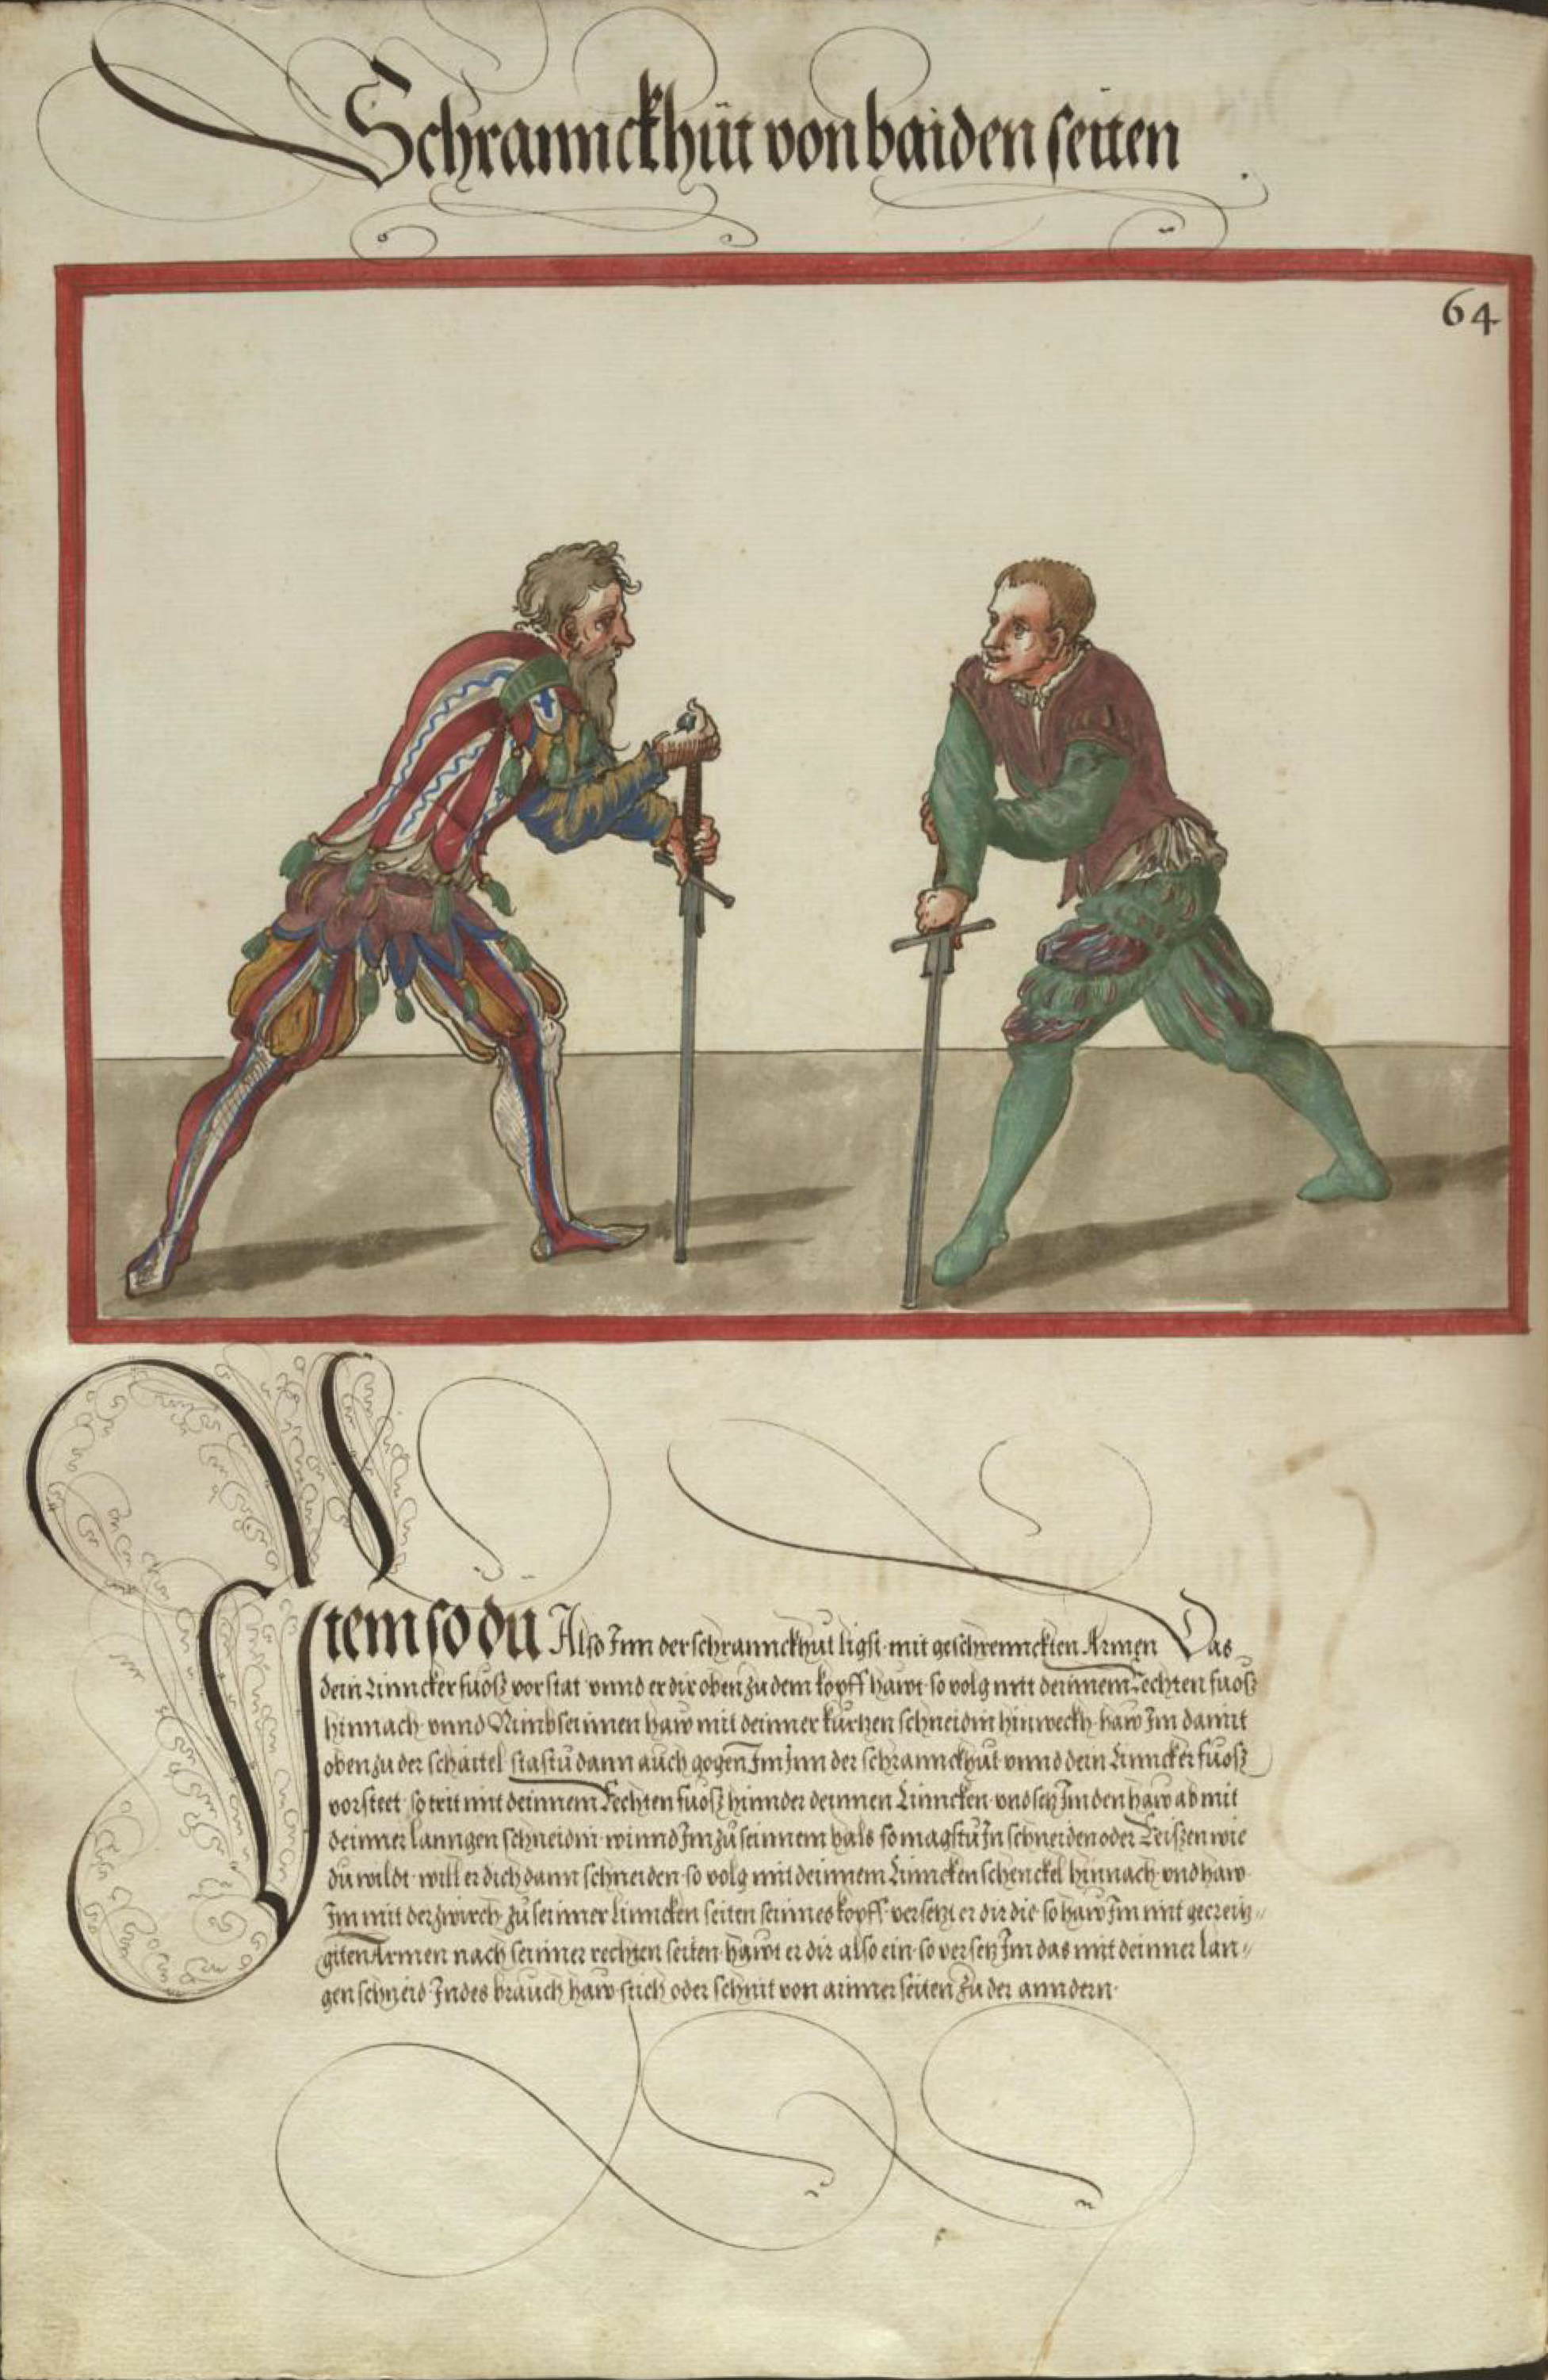 Schrannckhüt von baiden seiten .
64
Item so du Also Inn der schrannckhut ligst mit geschrennckten Armen Das
dein Linncker fuosz vor stat vnnd er dir oben zu dem kopff hawt so volg mitt deinnem Rechten fuosz
hinnach vnnd Nimb seinnen haw mit deinner kurtzen schneidin hinweckh haw Im damit
oben zu der schaittel stastu dann auch gogen Im Inn der schrannckhut vnnd dein Linncker fuosz
vorsteet so trit mit deinnem Rechten fuosz hinnder deinnen Linncken vnd setz Im den haw ab mit
deinner lanngen schneidin winnd Im zu seinnem hals so magstu In schneiden oder Reiszen wie
du wildt will er dich dann schneiden so volg mit deinnem Linncken schenckel hinnach vnd haw
Im mit der zwirch zu seinner Linncken seiten seinnes kopff versetzt er dir die so haw Im mit gecreitz„
gten Armen nach seinner rechten seiten hawt er dir also ein so versetz Im das mit deinner lan„
gen schneid Indes brauch haw stich oder schnit von ainner seiten zu der anndern